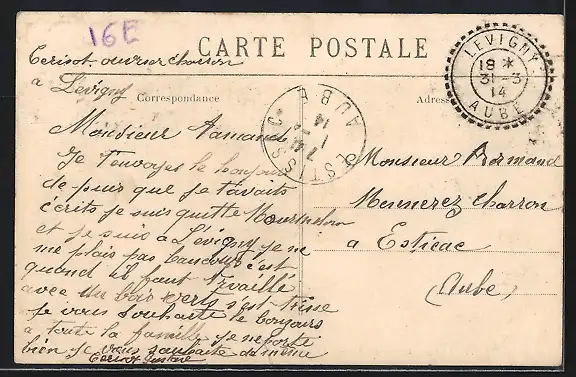 16E
CARTE POSTALE
Cerisot ouvrier charron
a Lévigny
Correspondance
Adresse
LEVIGNY
18 *
31-3
14
AUBE
AUBE
14
Monsieur Armand
Je t'envoyes le bonjour
de puis que je t'avais
écrits je suis quitte Mourmelon
et je suis a Lévigny je ne
me plais pas baucoup c'est
quand il faut travaillé
avec du bois verts s'est triste
je vous souhaite le bonjours
a toute la famille je me porte
bien je vous souhaite de même
Cerisot Gustave
Monsieur Armand
Mennerez Charron
a Estissac
(Aube)